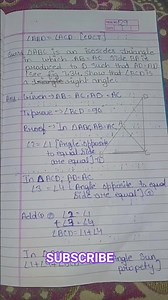 ∠ABD = ∠ACD [CPCT]
ΔABC is an isosceles triangle
in which AB = AC. Side BA is
produced to D such that AD = AB
Show that ∠BCD is
a right angle.
Given → AB = AC, AD = AC
To prove → ∠BCD = 90°
Proof → In ΔABC, AB = AC
∠2 = ∠1 [Angle opposite
to equal side
are equal]
In ΔACD, AD = AC
∠3 = ∠4 [Angle opposite to equal
side are equal]
Adding ∠2 = ∠1
+ ∠3 = ∠4
∠BCD = ∠1 + ∠4
In
angle sum
property]
SUBSCRIBE